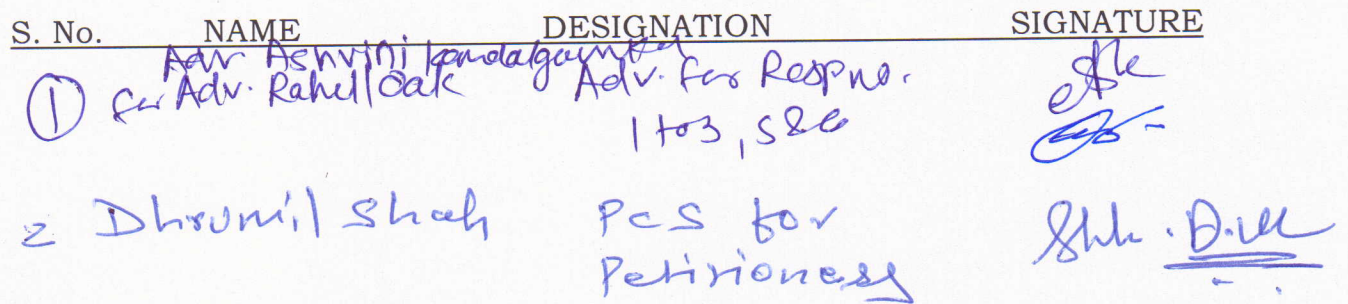 S. No. NAME DESIGNATION SIGNATURE
Adv Ashvini
① for Adv. Rahul Oak Adv. for Resp no.
1 to 3, 5 & 6
2 Dhrumil Shah PCS for
Petitioners